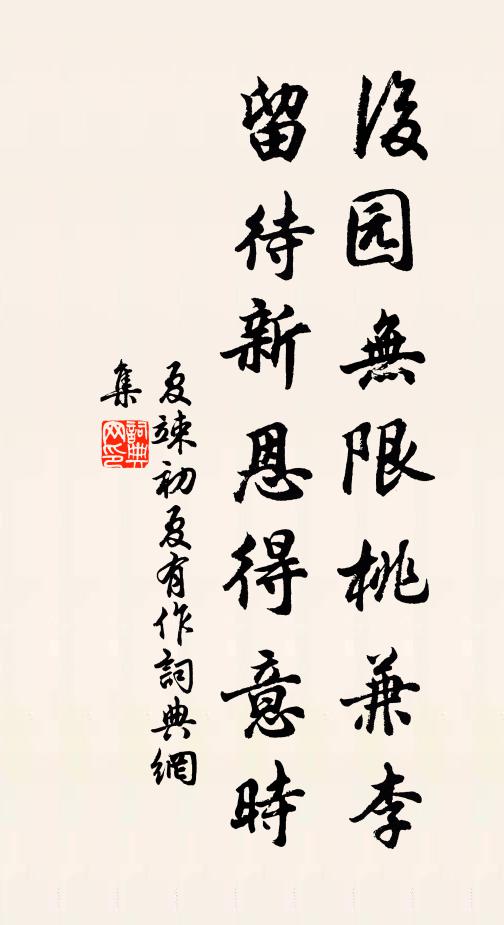 後园無限桃兼李
留待新恩得意時
夏竦初夏有作詞典網
集
詞典
网印